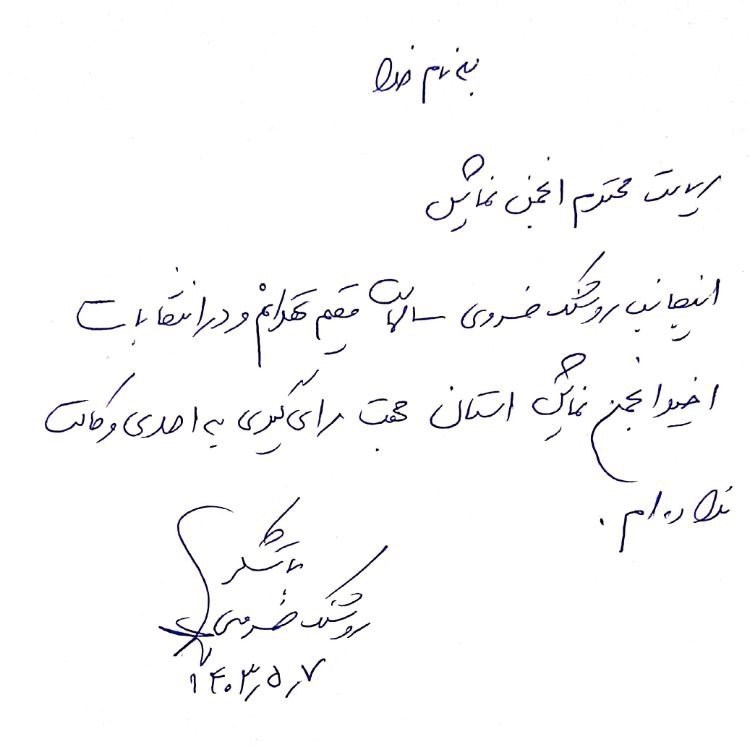 به نام خدا
ریاست محترم انجمن نمایش
اینجانب روشنک خسروی سالهاست مقیم تهرانم و در انتخابات
اخیر انجمن نمایش استان جهت رای گیری به احدی وکالت
نداده ام.
با تشکر
روشنک خسروی
۱۴۰۳٫۵٫۷